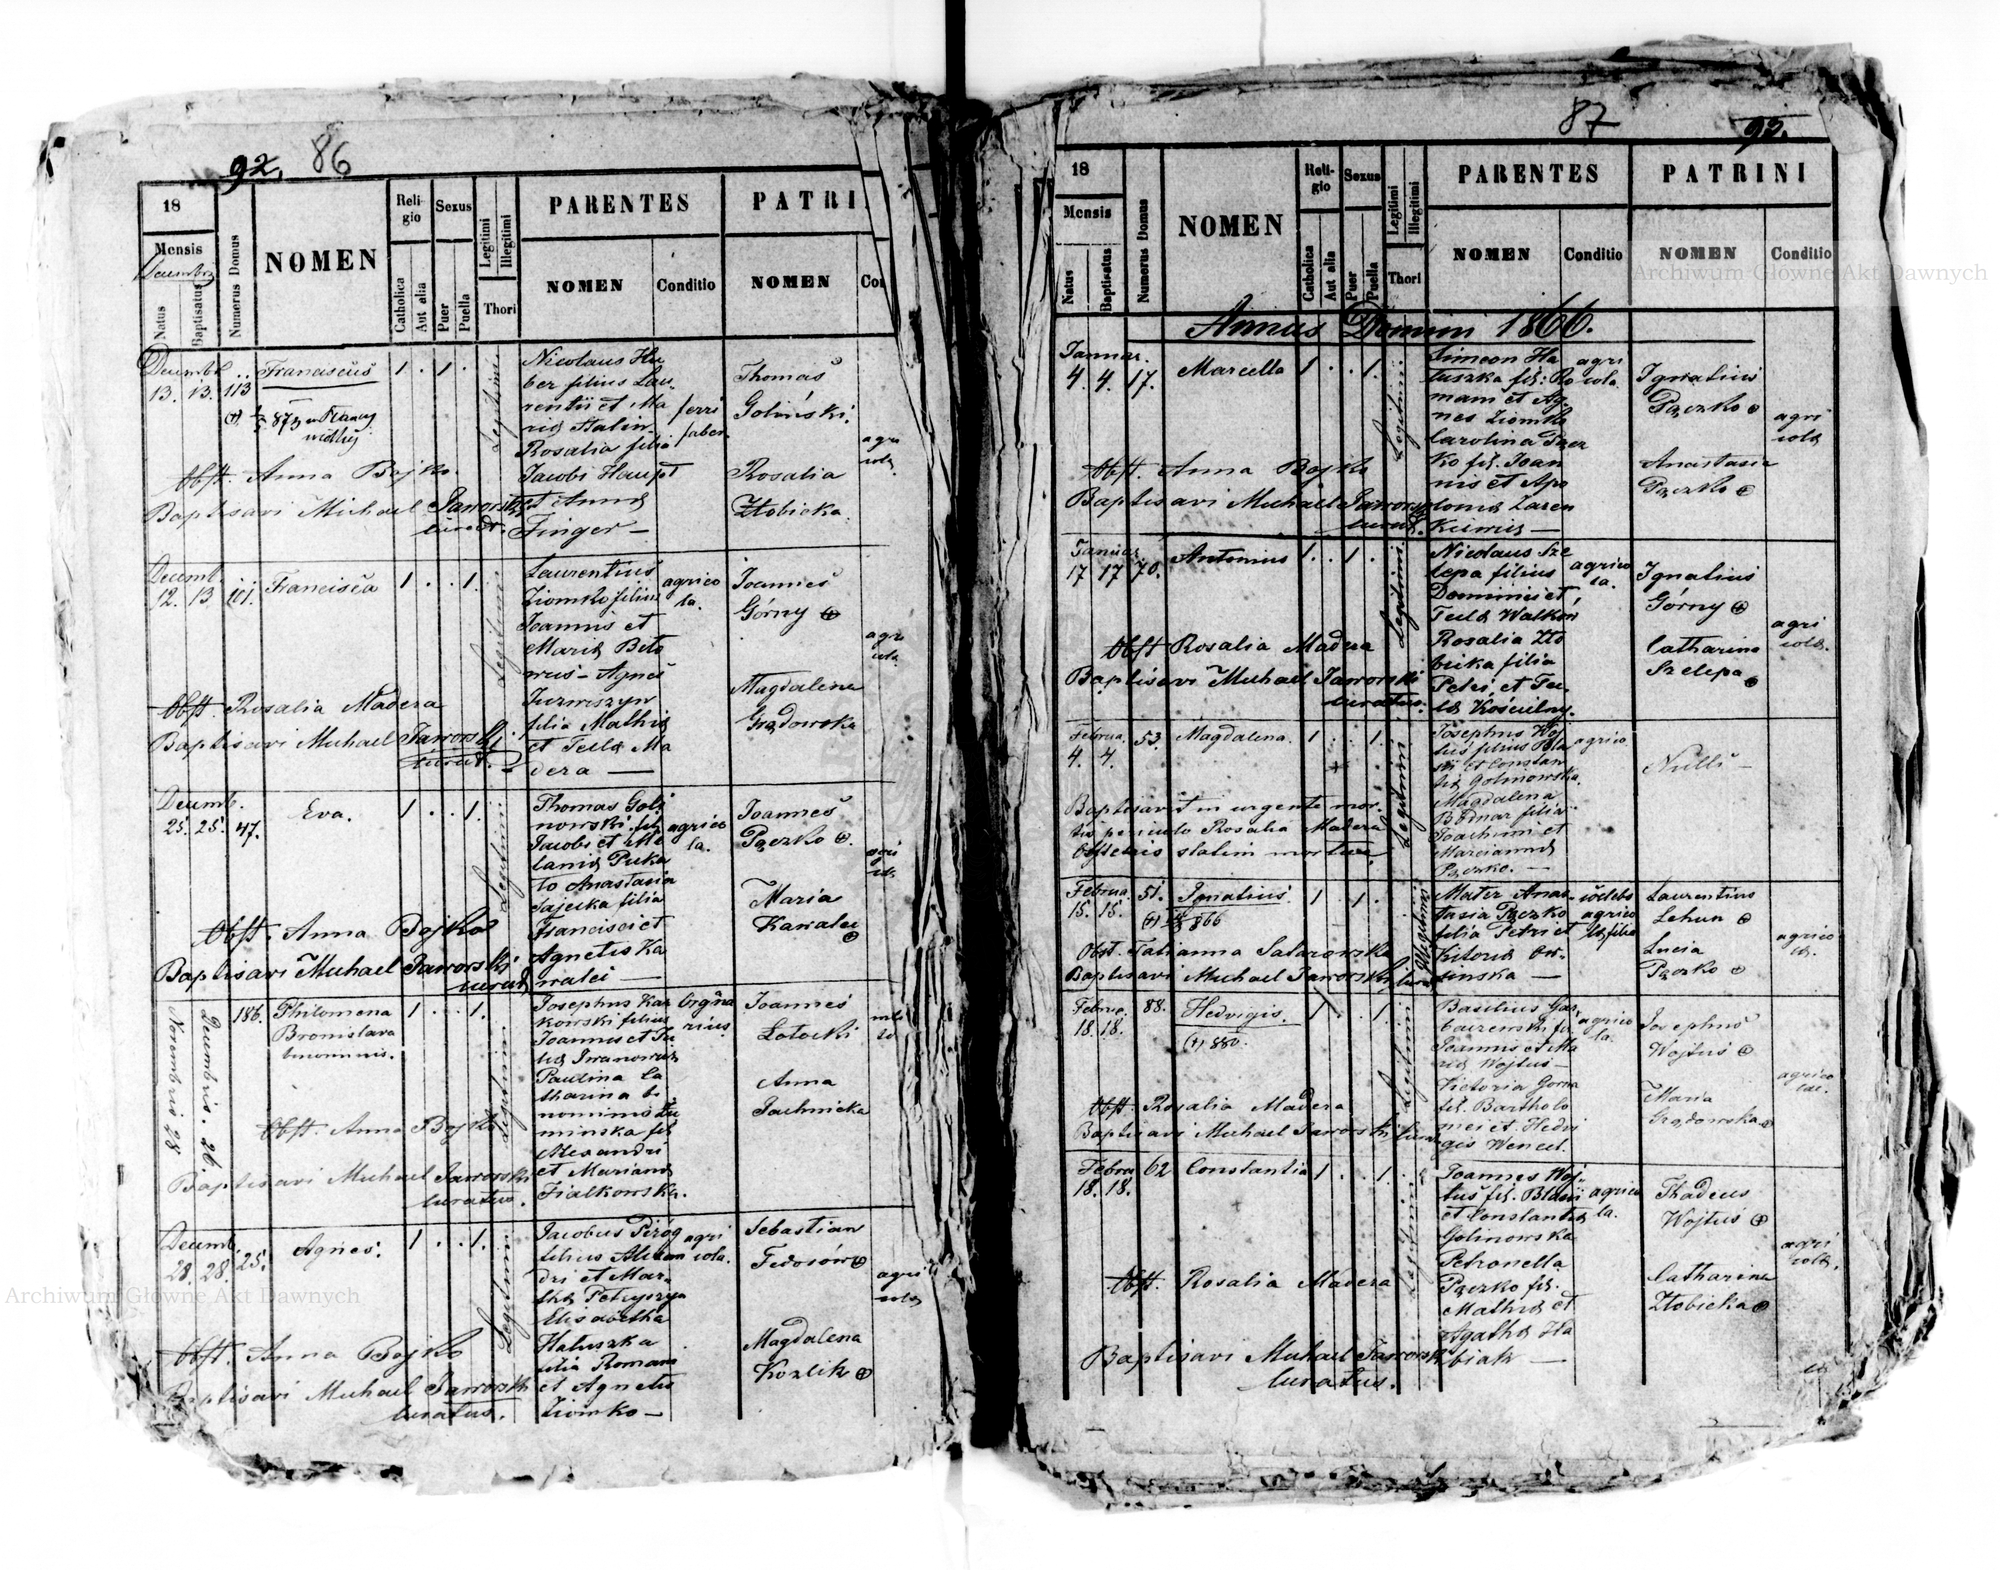 92. 86
18
Mensis
Natus
Baptisatus
Numerus Domus
NOMEN
Religio
Catholica
Aut alia
Sexus
Puer
Puella
Legitimi
Illegitimi
Thori
PARENTES
NOMEN
Conditio
PATRI
NOMEN
Decembr.
13. 13. 113
Franciscus
1 . 1 .
Legitimi
Nicolaus Hu
ber filius Lau
rentii et Ma
Rosalia filia
Jacobi Haupt
et Anna
Finger —
ferri
faber.
Thomas
Goliński.
Rosalia
Złobicka
agri
Obst. Anna Bojko
Baptisavi Michael Jaworski
Decemb.
12. 13 101.
Francisca
1 . . 1.
Legitimi
Laurentius
Ziomko filius
Joannis et
Agnes
filia Mathiæ
et Teclæ Ma
dera —
agrico
la.
Joannes
Górny
Magdalena
Grądowska
agri
Obst. Rosalia Madera
Baptisavi Michael Jaworski
Decemb.
25. 25. 47.
Eva.
1 . . 1.
Legitimi
Thomas Goli
nowski fil.
Jacobi et Me
laniæ
to Anastasia
filia
Francisci et
Agnetis Ka
walei —
agrico
la.
Joannes
Pączko
Maria
Kawalec
Obst. Anna Bojko
Baptisavi Michael Jaworski
Novembris 28
Decembris 26.
186.
Philomena
Bronislava
binominis.
1 . . 1.
Legitimi
Josephus Kar
kowski filius
Joannis et Ju
Paulina Ca
tharina bi
nominis
minska fil.
Alexandri
et Marianæ
Fialkowska.
Orgna
rius
Joannes
Łotocki
Anna
Obst. Anna Bojko
Baptisavi Michael Jaworski
Curatus.
Decemb.
28. 28. 25.
Agnes.
1 . . 1.
Legitimi
Jacobus Piróg
filius Alexan
dri et Mar
thæ
Elisabetha
Hatuszka
filia Romani
et Agnetis
Ziomko —
agri
cola
Sebastian
Fedosów
Magdalena
Kozlik
agri
Obst. Anna Bojko
Baptisavi Michael Jaworski
Curatus.
87
18
Mensis
Natus
Baptisatus
Numerus Domus
NOMEN
Religio
Catholica
Aut alia
Sexus
Puer
Puella
Legitimi
Illegitimi
Thori
PARENTES
NOMEN
Conditio
PATRINI
NOMEN
Conditio
Annus Domini 1866.
Januar.
4. 4. 17.
Marcella
1 . . 1.
Legitimi
Simeon Ha
tuszka fil. Ro
mani et Ag
nes Ziomko
Carolina Pącz
ko fil. Joan
nis et Apo
loniæ
agri
cola.
Ignatius
Pączko
Anastasia
Pączko
agri
colæ
Obst. Anna Bojko
Baptisavi Michael Jaworski
Januar.
17 17 70.
Antonius
1 . 1 .
Legitimi
Nicolaus Sze
lepa filius
Dominici et
Rosalia Zło
bicka filia
Petri et Te
clæ Kościelny.
agrico
la.
Ignatius
Górny
Catharina
Szelepa
agri
colæ.
Obst. Rosalia Madera
Baptisavi Michael Jaworski
Curatus.
Februa.
4. 4. 53.
Magdalena.
1 . . 1.
Legitimi
Josephus Woj
tuś filius Bla
sii et Constan
tiæ Golinowska
Magdalena
Bodnar filia
Joachimi et
Mariannæ
Pączko. —
agrico
Nulli —
Baptisavit in urgente mor
tis periculo Rosalia Madera
Obstetrix statim mortua
Februa.
15. 15. 51.
Ignatius.
1 . 1 .
Illegitimi
Mater Anas
tasia Pączko
filia Petri et
Laurentius
Lehun
Lucia
Pączko
agrico
Obst. Tatianna
Baptisavi Michael Jaworski
Februa.
18. 18. 88.
Hedvigis.
(+) 880.
1 . . 1.
Legitimi
Basilius
Joannis et Ma
riæ Wojtuś —
Victoria Gorna
fil. Bartholo
mei et Hedvi
gis Wencel.
agrico
la.
Josephus
Wojtuś
Maria
Grądowska
agrico
læ.
Obst. Rosalia Madera
Baptisavi Michael Jaworski
Februa
18. 18. 62
Constantia
1 . . 1.
Legitimi
Joannes Woj
tuś fil. Blasii
et Constantiæ
Golinowska
Petronella
Pączko fil.
Mathiæ et
Agathæ
agrico
la.
Thadeus
Wojtuś
Catharina
Złobicka
agri
colæ.
Obst. Rosalia Madera
Baptisavi Michael Jaworski
Curatus.
Archiwum Główne Akt Dawnych
Archiwum Główne Akt Dawnych